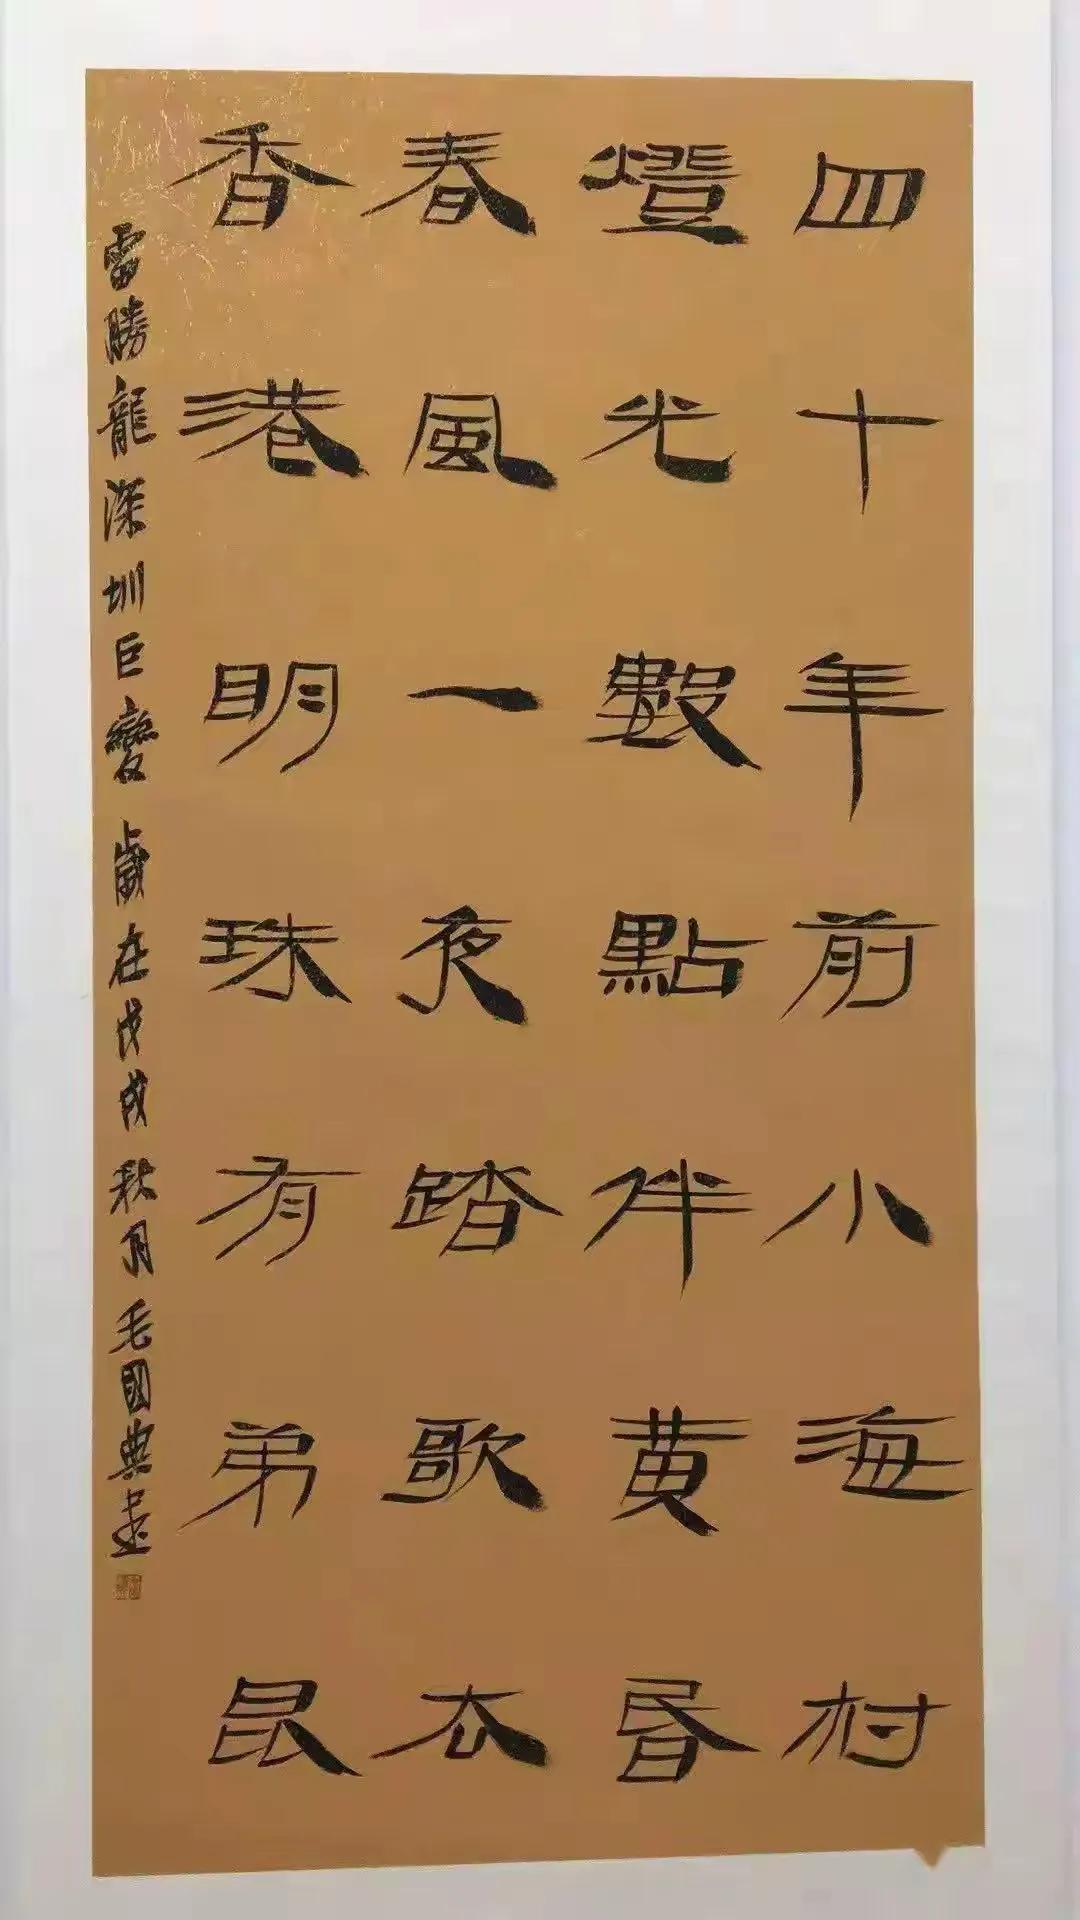 四十年前小海村
燈光數點伴黃昏
春風一夜踏歌去
香港明珠有弟昆
雷勝龍深圳巨變 歲在戊戌秋月毛國典書